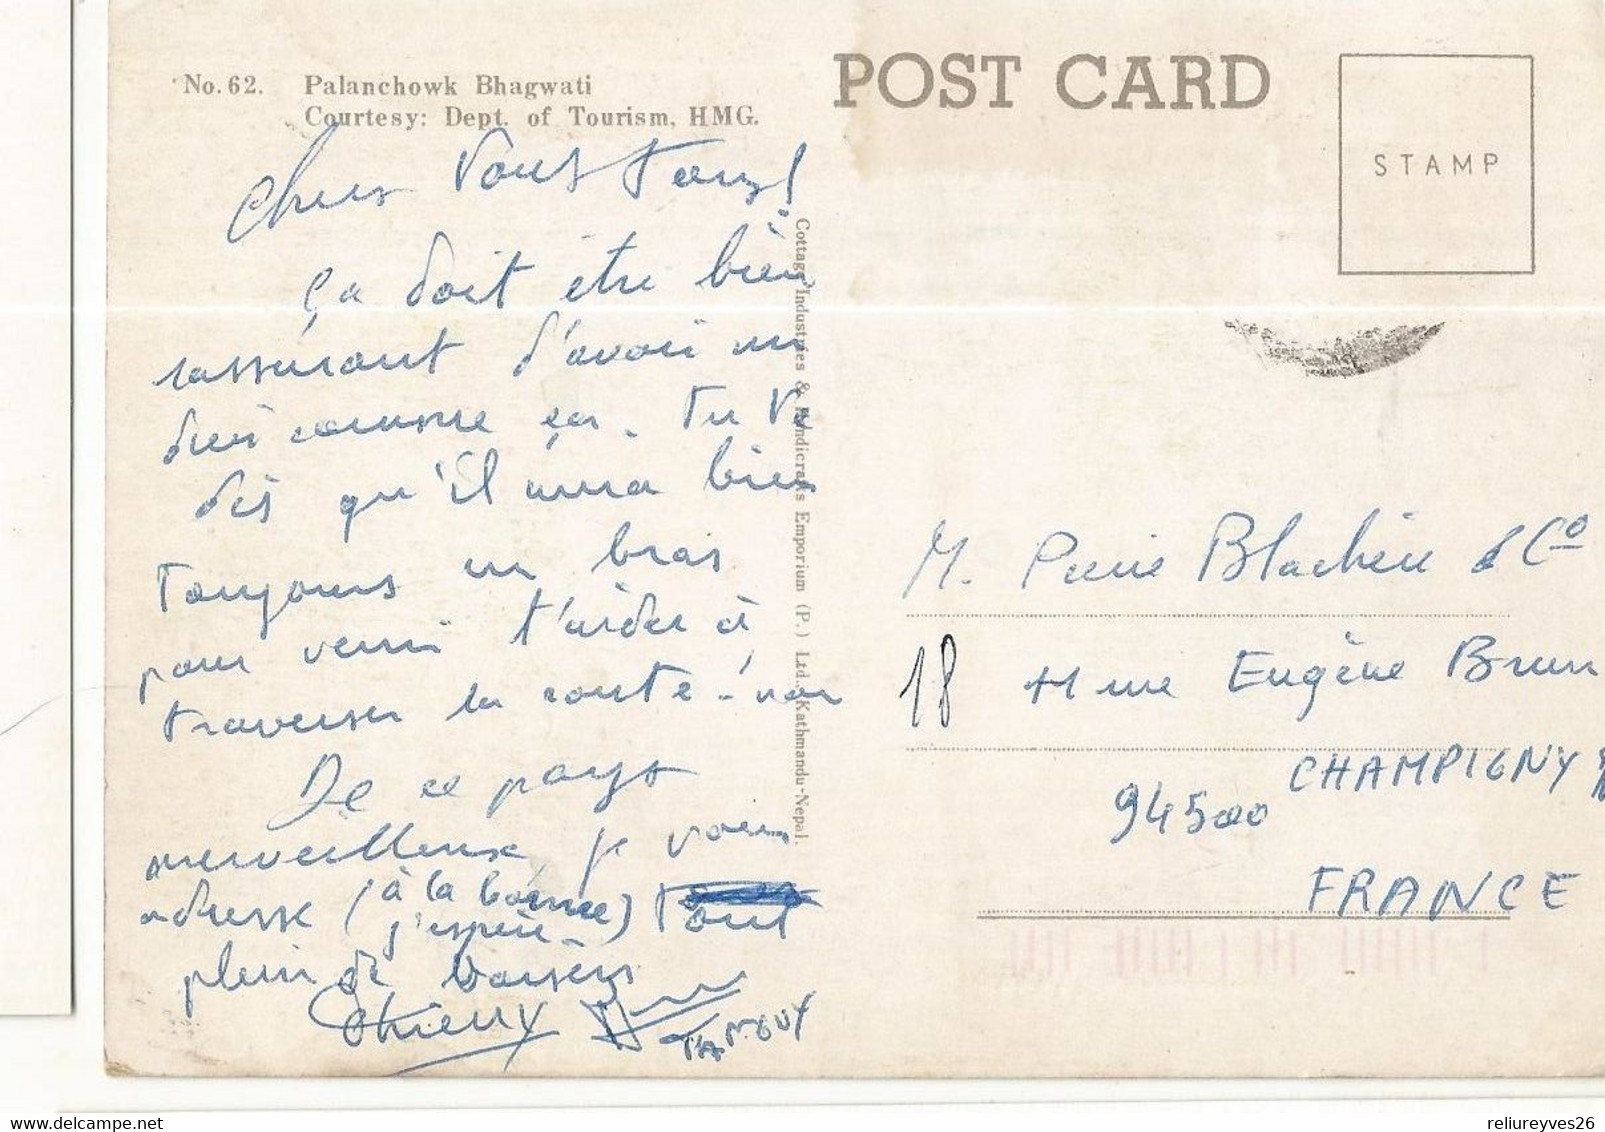 No. 62. Palanchowk Bhagwati
Courtesy: Dept. of Tourism, HMG.
POST CARD
STAMP
Chers Vous Tous!
Ça doit être bien
rassurant d'avoir un
dieu comme ça. Tu te
dis qu'il aura bien
Toujours un bras
pour venir t'aider à
traverser la route - non
De ce pays
merveilleux je vous
adresse (à la bonne) Tout
j'espère
plein de baisers
Thierry
Cottage Industries & Handicrafts Emporium (P.) Ltd. Kathmandu-Nepal.
M. Pierre Blachère & Co
18 rue Eugène Brun
CHAMPIGNY
94500
FRANCE
reliureyves26